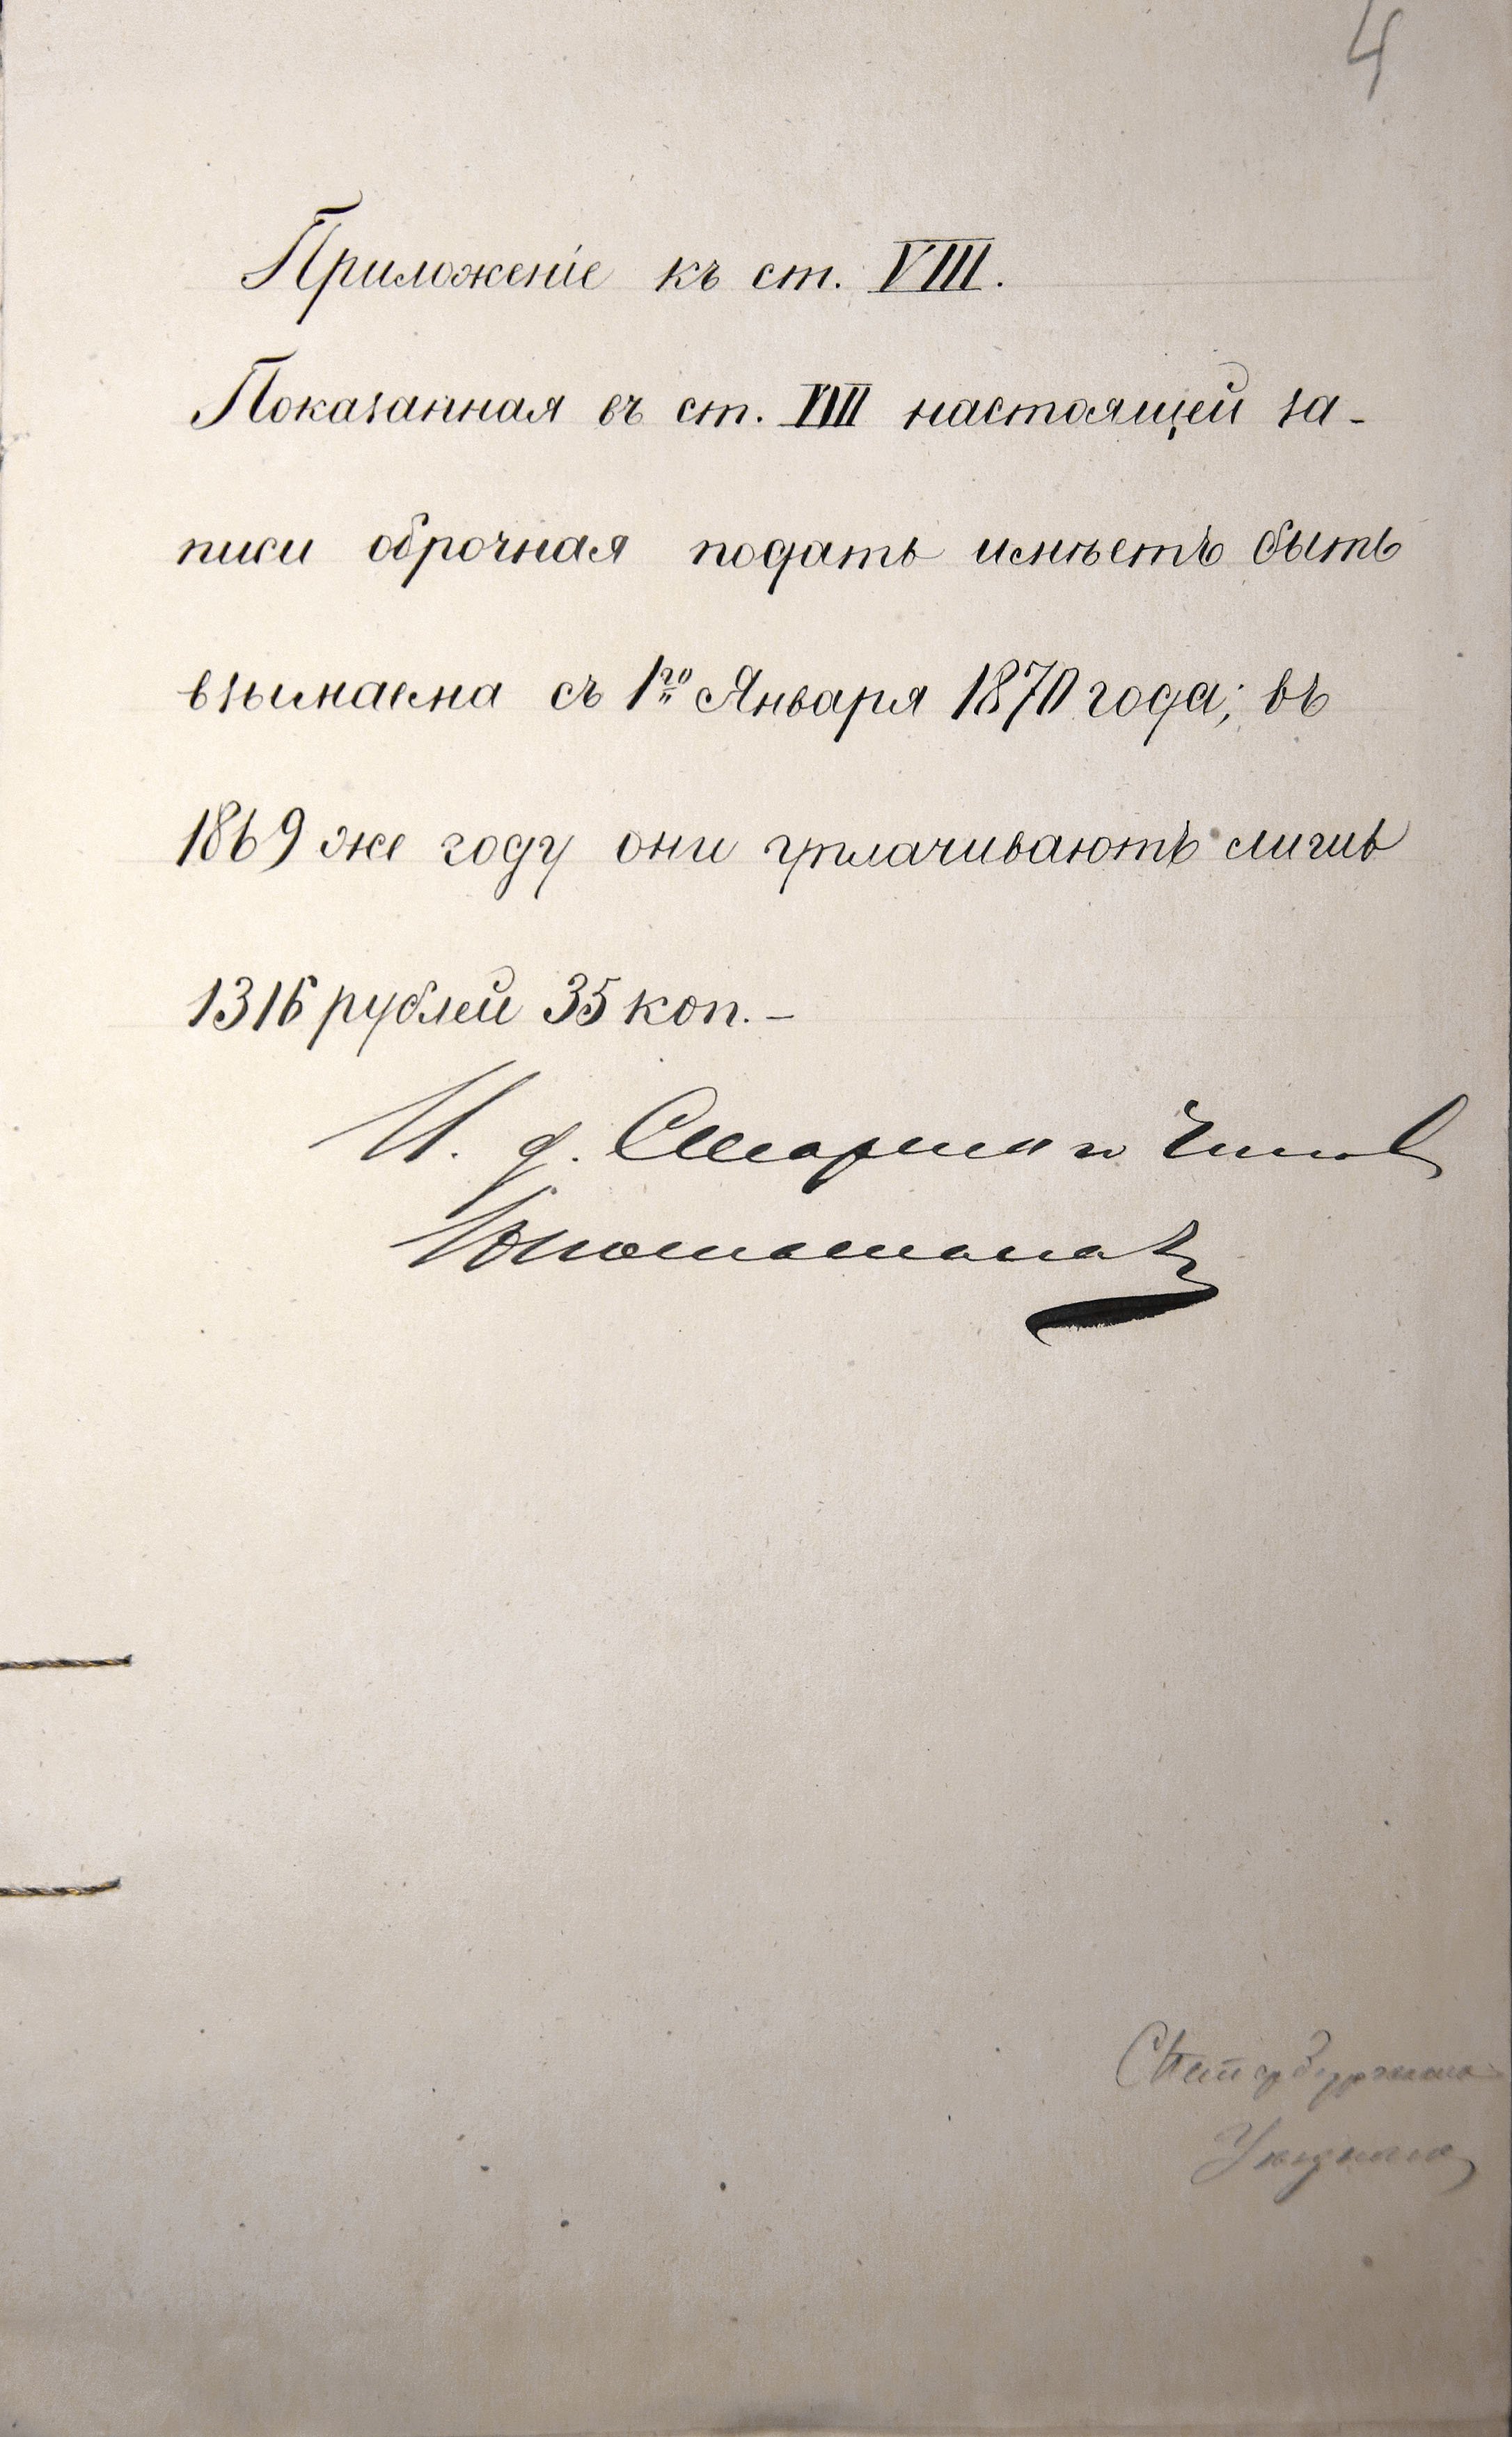 4
Приложеніе къ ст. VIII.
Показанная въ ст. VIII настоящей за-
писи оброчная подать имѣетъ быть
взымаема съ 1го Января 1870 года; въ
1869 же году они уплачиваютъ лишь
1316 рублей 35 коп. –
И. д. Старшаго Чинов
СПетербургскаго
Уѣзднаго